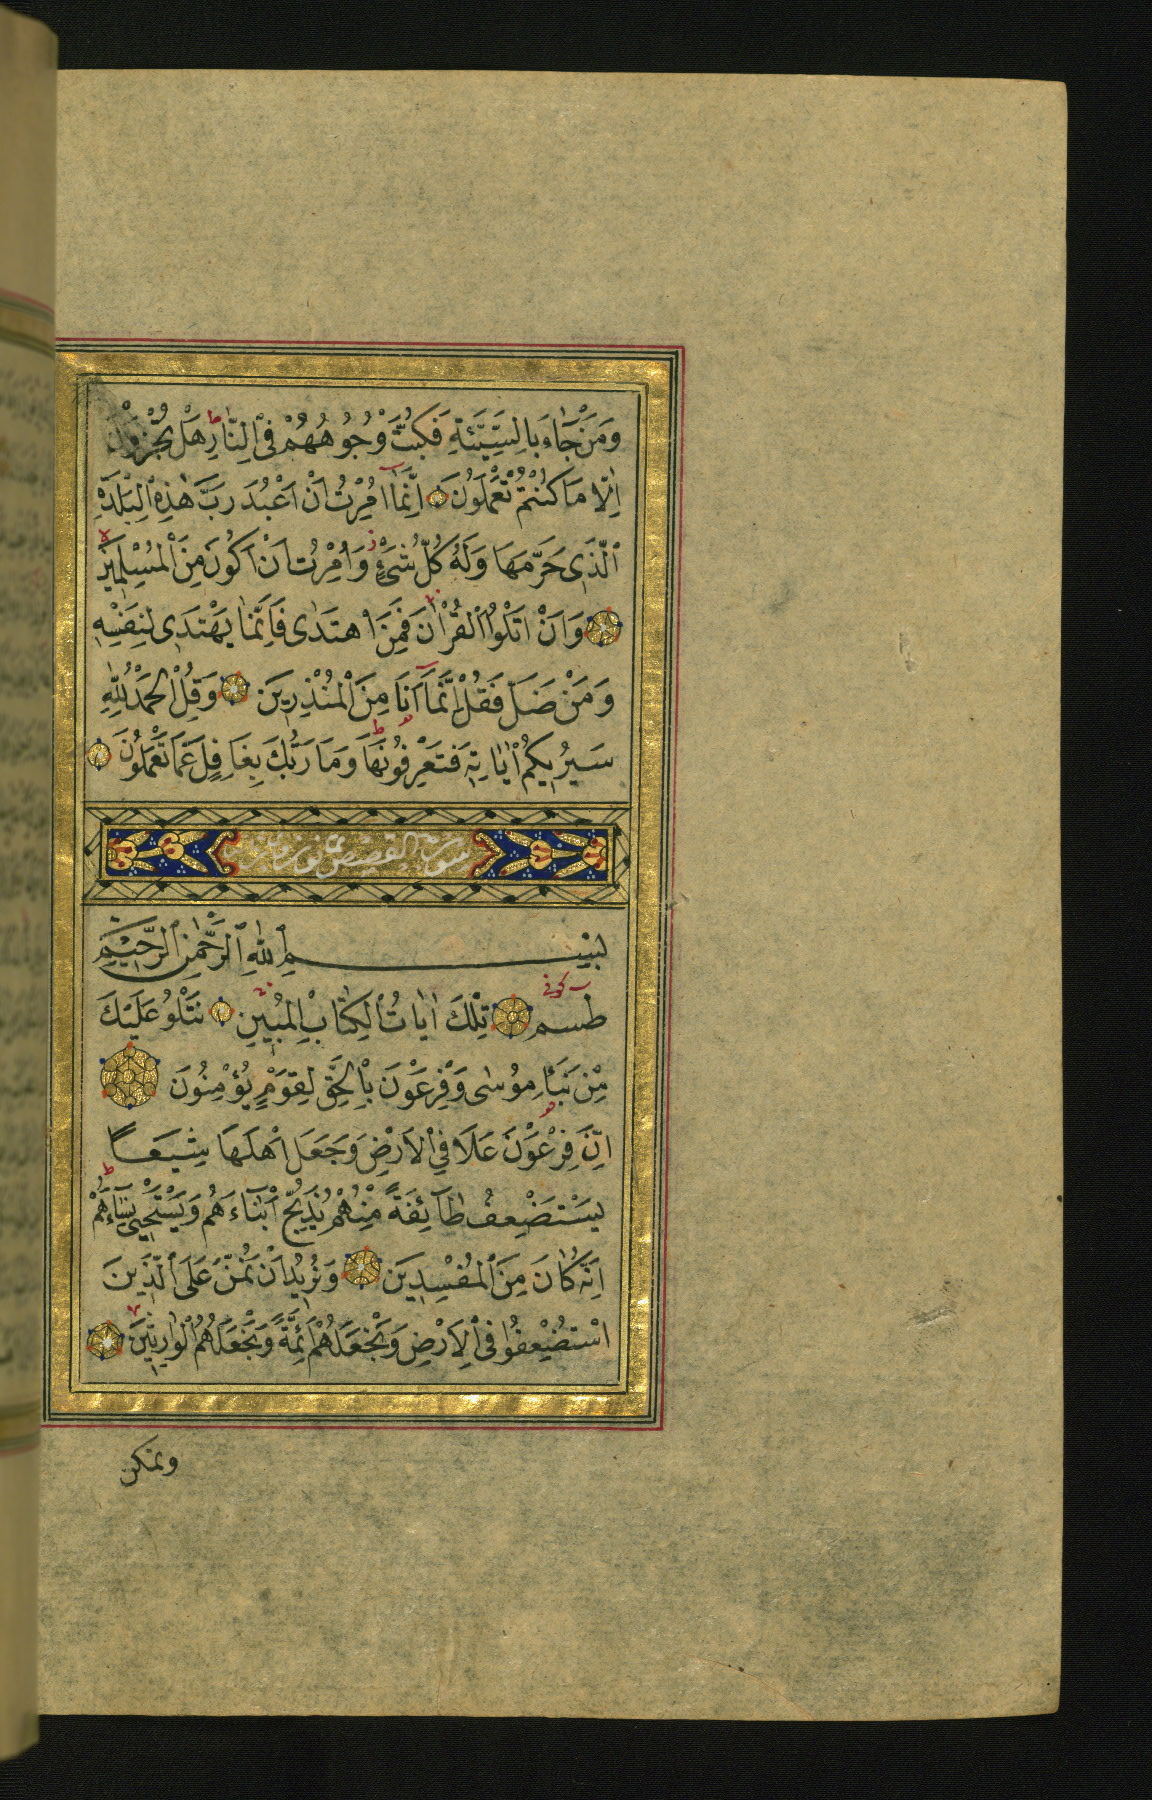 وَمَنْ جَاءَ بِالسَّيِّئَةِ فَكُبَّتْ وُجُوهُهُمْ فِي النَّارِ هَلْ تُجْزَوْنَ
اِلَّا مَا كُنْتُمْ تَعْمَلُونَ اِنَّمَا اُمِرْتُ اَنْ اَعْبُدَ رَبَّ هٰذِهِ الْبَلْدَةِ
الَّذِى حَرَّمَهَا وَلَهُ كُلُّ شَىْءٍ وَاُمِرْتُ اَنْ اَكُونَ مِنَ الْمُسْلِمِينَ
وَاَنْ اَتْلُوَا الْقُرْاٰنَ فَمَنِ اهْتَدٰى فَاِنَّمَا يَهْتَدِى لِنَفْسِهِ
وَمَنْ ضَلَّ فَقُلْ اِنَّمَا اَنَا مِنَ الْمُنْذِرِينَ وَقُلِ الْحَمْدُ لِلّٰهِ
سَيُرِيكُمْ اٰيَاتِهِ فَتَعْرِفُونَهَا وَمَا رَبُّكَ بِغَافِلٍ عَمَّا تَعْمَلُونَ
سورة القصص ثمانون
بِسْمِ اللّٰهِ الرَّحْمٰنِ الرَّحِيمِ
كوفى
طسم تِلْكَ اٰيَاتُ الْكِتَابِ الْمُبِينِ نَتْلُو عَلَيْكَ
مِنْ نَبَاِ مُوسٰى وَفِرْعَوْنَ بِالْحَقِّ لِقَوْمٍ يُؤْمِنُونَ
اِنَّ فِرْعَوْنَ عَلَا فِي الْاَرْضِ وَجَعَلَ اَهْلَهَا شِيَعًا
يَسْتَضْعِفُ طَائِفَةً مِنْهُمْ يُذَبِّحُ اَبْنَاءَهُمْ وَيَسْتَحْيِى نِسَاءَهُمْ
اِنَّهُ كَانَ مِنَ الْمُفْسِدِينَ وَنُرِيدُ اَنْ نَمُنَّ عَلَى الَّذِينَ
اسْتُضْعِفُوا فِى الْاَرْضِ وَنَجْعَلَهُمْ اَئِمَّةً وَنَجْعَلَهُمُ الْوَارِثِينَ
ونمكن